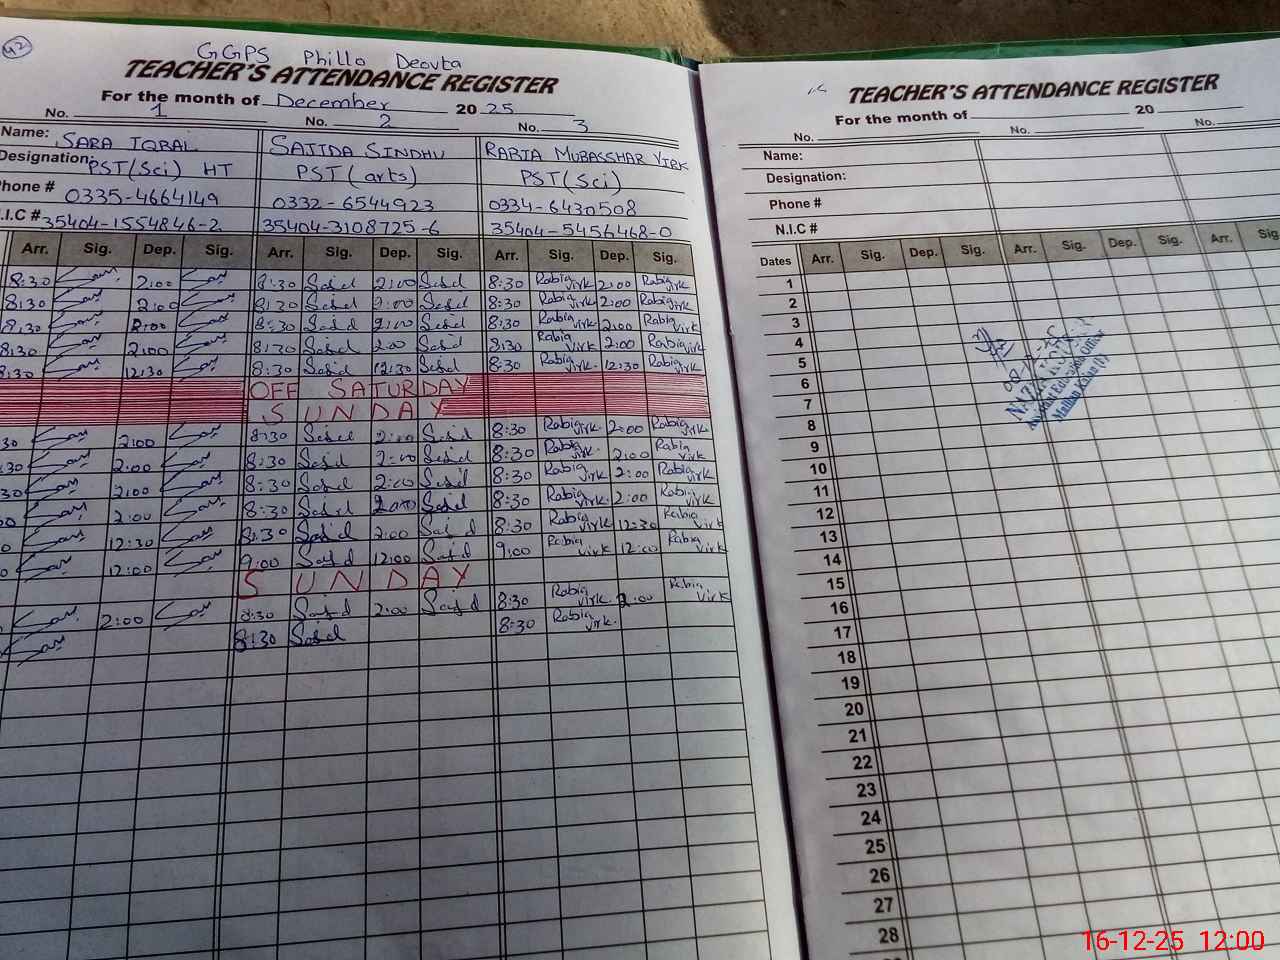 42
GGPS Phillo Deovta
TEACHER'S ATTENDANCE REGISTER
For the month of December 2025
No. 1 No. 2 No. 3
Name: SARA IQBAL SAJIDA SINDHU RABIA MUBASSHAR VIRK
Designation: PST(Sci) HT PST(arts) PST(Sci)
Phone # 0335-4664149 0332-6544923 0334-6430508
N.I.C # 35404-1554846-2 35404-3108725-6 35404-5456468-0
Arr. Sig. Dep. Sig. Arr. Sig. Dep. Sig. Arr. Sig. Dep. Sig.
8:30 2:00 8:30 Sajd 2:00 Sajd 8:30 Rabia virk 2:00 Rabia virk
8:30 2:00 8:30 Sajd 2:00 Sajd 8:30 Rabia virk 2:00 Rabia virk
8:30 2:00 8:30 Sajd 2:00 Sajd 8:30 Rabia virk 2:00 Rabia virk
8:30 2:00 8:30 Sajd 2:00 Sajd 8:30 Rabia virk 2:00 Rabia virk
8:30 12:30 8:30 Sajd 12:30 Sajd 8:30 Rabia virk 12:30 Rabia virk
OFF SATURDAY
SUNDAY
30 2:00 8:30 Sajd 2:00 Sajd 8:30 Rabia virk 2:00 Rabia virk
30 2:00 8:30 Sajd 2:00 Sajd 8:30 Rabia virk 2:00 Rabia virk
30 2:00 8:30 Sajd 2:00 Sajd 8:30 Rabia virk 2:00 Rabia virk
2:00 8:30 Sajd 2:00 Sajd 8:30 Rabia virk 2:00 Rabia virk
12:30 8:30 Sajd 2:00 Sajd 8:30 Rabia virk 12:30 Rabia virk
12:00 9:00 Sajd 12:00 Sajd 9:00 Rabia virk 12:00 Rabia virk
SUNDAY
2:00 8:30 Sajd 2:00 Sajd 8:30 Rabia virk 2:00 Rabia virk
8:30 Sajd 8:30 Rabia virk
TEACHER'S ATTENDANCE REGISTER
For the month of 20
No. No. No.
Name:
Designation:
Phone #
N.I.C #
Dates Arr. Sig. Dep. Sig. Arr. Sig. Dep. Sig. Arr. Sig
1
2
3
4
5
6
7
8
9
10
11
12
13
14
15
16
17
18
19
20
21
22
23
24
25
26
27
28
16-12-25 12:00